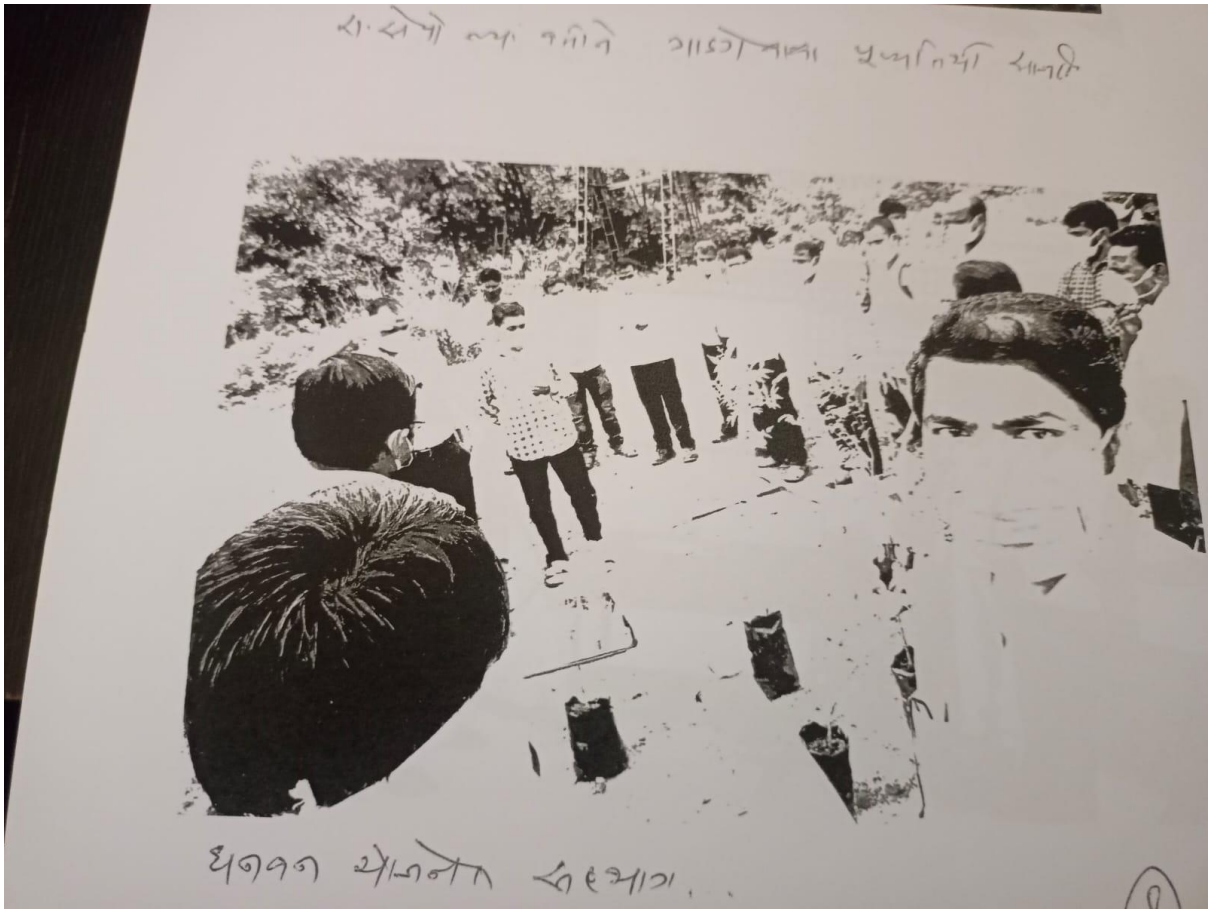 रा.से.यो च्या वतीने गाडगेबाबा पुण्यतिथी साजरी
घनवन योजनेत सहभाग...